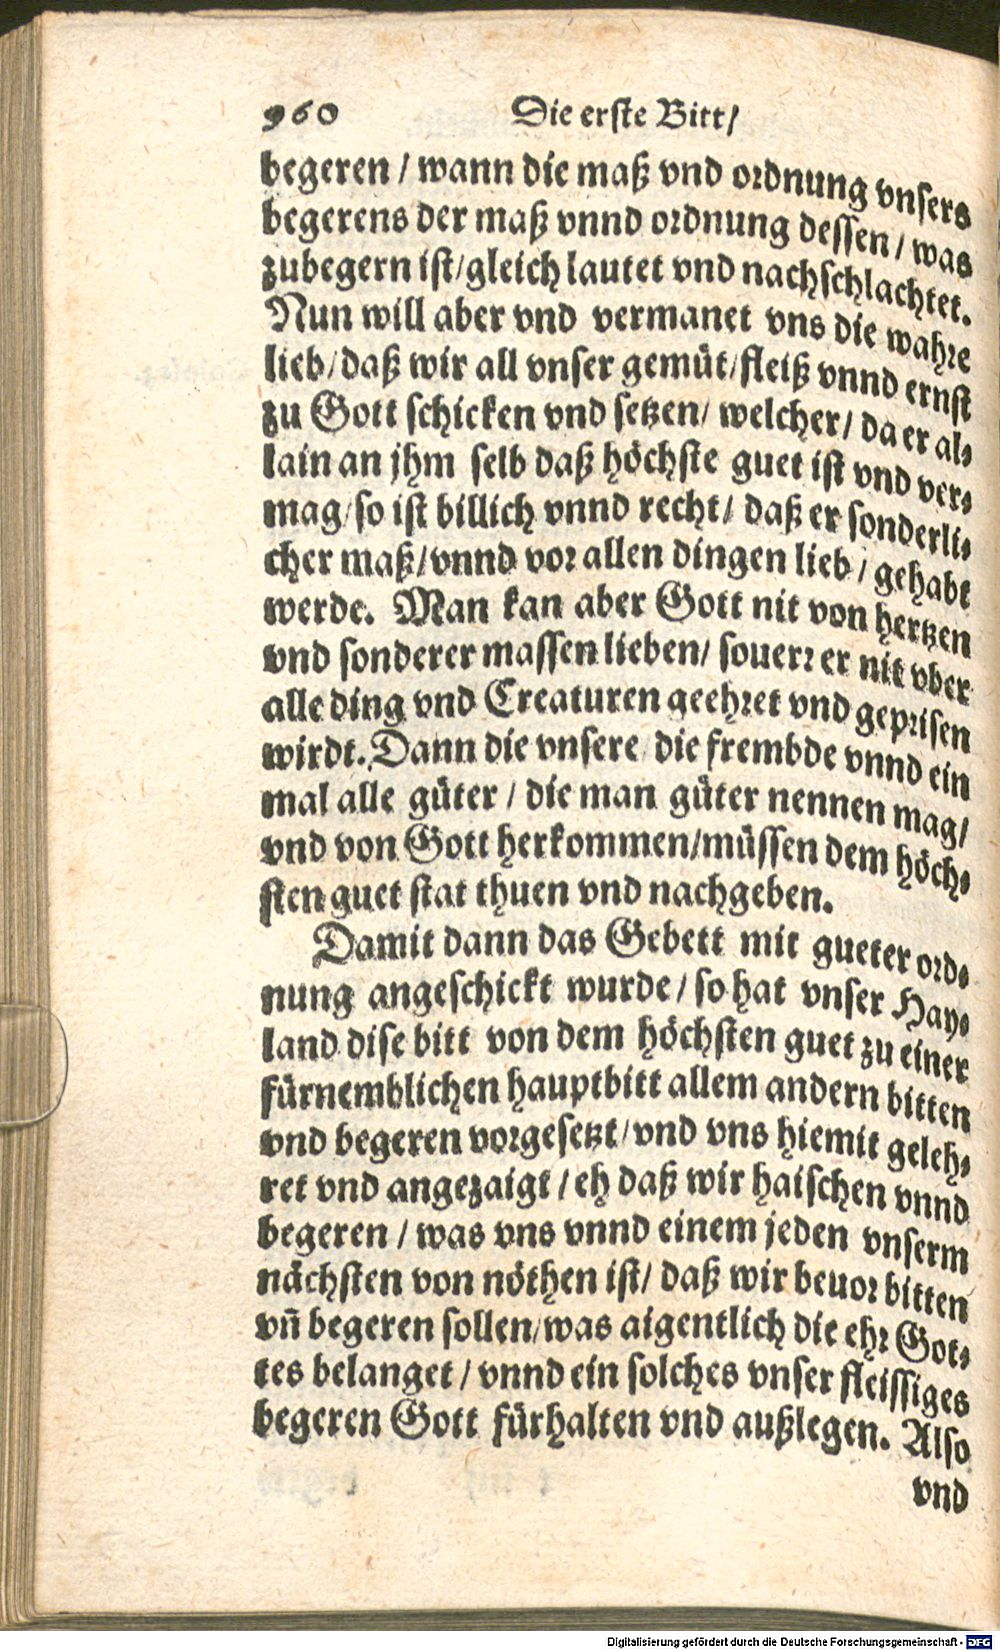 960 Die erste Bitt/
begeren / wann die maß vnd ordnung vnsers
begerens der maß vnnd ordnung dessen / was
zubegern ist/gleich lautet vnd nachschlachtet.
Nun will aber vnd vermanet vns die wahre
lieb/daß wir all vnser gemüt/fleiß vnnd ernst
zu Gott schicken vnd setzen/ welcher/ da er al⸗
lain an jhm selb daß höchste guet ist vnd ver⸗
mag/so ist billich vnnd recht/ daß er sonderli⸗
cher maß/vnnd vor allen dingen lieb / gehabt
werde. Man kan aber Gott nit von hertzen
vnd sonderer massen lieben/ souerr er nit vber
alle ding vnd Creaturen geehret vnd geprisen
wirdt. Dann die vnsere die frembde vnnd ein
mal alle güter / die man güter nennen mag/
vnd von Gott herkommen/müssen dem höch⸗
sten guet stat thuen vnd nachgeben.
Damit dann das Gebett mit gueter ord⸗
nung angeschickt wurde / so hat vnser Hay⸗
land dise bitt von dem höchsten guet zu einer
fürnemblichen hauptbitt allem andern bitten
vnd begeren vorgesetzt/vnd vns hiemit geleh⸗
ret vnd angezaigt / eh daß wir haischen vnnd
begeren / was vns vnnd einem jeden vnserm
nächsten von nöthen ist/ daß wir beuor bitten
vñ begeren sollen/was aigentlich die ehr Got⸗
tes belanget / vnnd ein solches vnser fleissiges
begeren Gott fürhalten vnd außlegen. Also
vnd
Digitalisierung gefördert durch die Deutsche Forschungsgemeinschaft - DFG